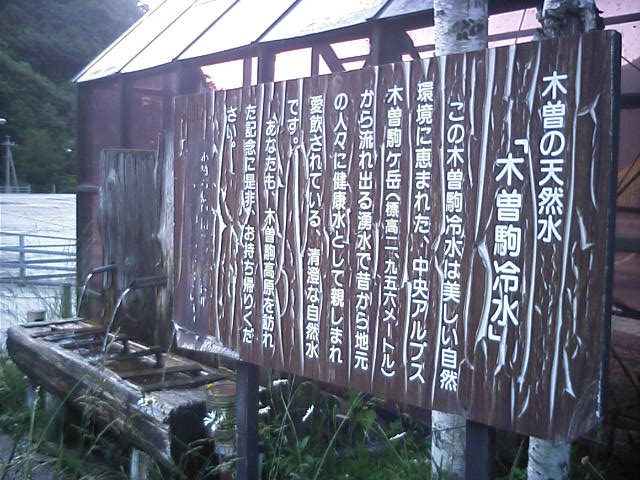 木曽の天然水
「木曽駒冷水」
この木曽駒冷水は美しい自然
環境に恵まれた、中央アルプス
木曽駒ケ岳(標高二、九五六メートル)
から流れ出る湧水で昔から地元
の人々に健康水として親しまれ
愛飲されている、清澄な自然水
です。
あなたも、木曽駒高原を訪れ
た記念に是非、お持ち帰りくだ
さい。